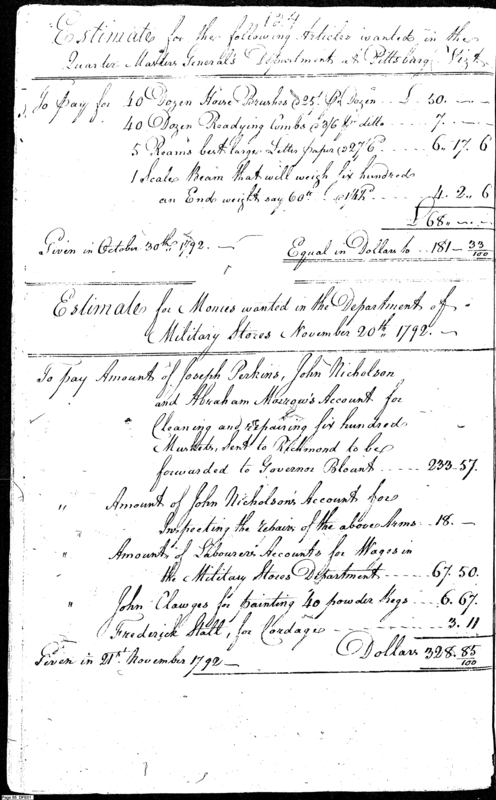 124
Estimate for the following Articles wanted in the
Quarter Masters General's Department at Pittsburg Vizt
To Pay for 40 Dozen Horse Brushes @ 25/ Pr Dozen £ 50. — —
40 Dozen Readying Combs @ 3/6 Pr ditto 7. — —
5 Reams best large Letter paper @ 27/6 6. 17. 6
1 Scale Beam that will weigh six hundred
an End weight say 60 4. 2. 6
£ 68. — —
Given in October 30th 1792. — Equal in Dollars to 181 - 33/100
Estimate for Monies wanted in the Department of
Military Stores November 20th 1792. —
To pay Amount of Joseph Perkins, John Nicholson
and Abraham Morrow's Account for
Cleaning and repairing six hundred
Muskets, sent to Richmond to be
forwarded to Governor Blount 233.57.
" Amount of John Nicholson's Account for
Inspecting the repairs of the above Arms 18. —
" Amount of Labourers Accounts for Wages in
the Military Stores Department 67.50.
" John Clawges for painting 40 powder Kegs 6.67.
Frederick Stall, for Cordage 3.11
Given in 21st November 1792 — Dollars 328.85/100